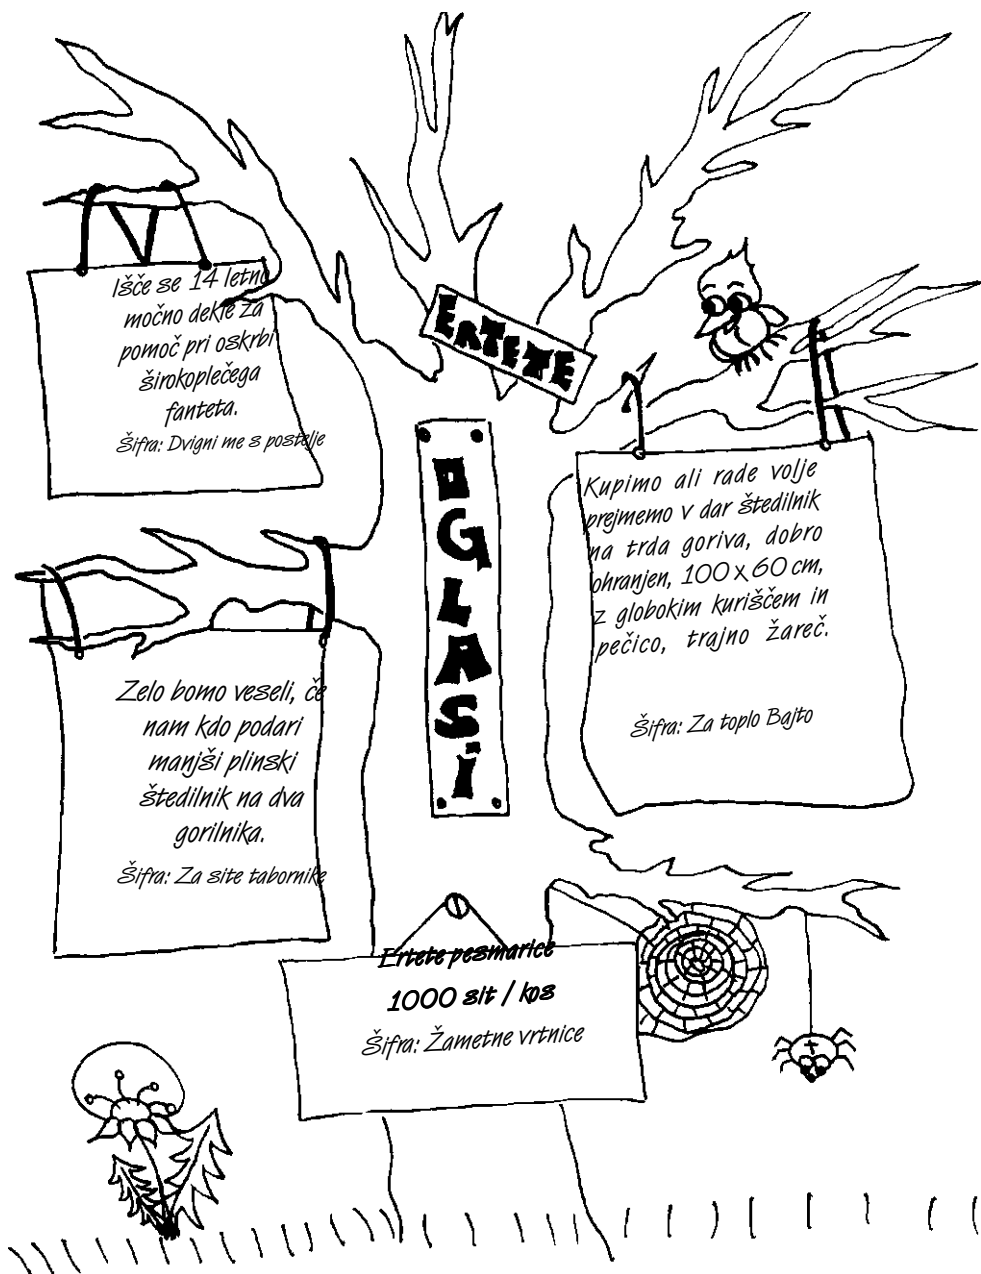 ERTETE
OGLASI
Išče se 14 letno
močno dekle za
pomoč pri oskrbi
širokoplečega
fanteta.
Šifra: Dvigni me s postelje
Kupimo ali rade volje
prejmemo v dar štedilnik
na trda goriva, dobro
ohranjen, 100 x 60 cm,
z globokim kuriščem in
pečico, trajno žareč.
Šifra: Za toplo Bajto
Zelo bomo veseli, če
nam kdo podari
manjši plinski
štedilnik na dva
gorilnika.
Šifra: Za site tabornike
Ertete pesmarice
1000 sit / kos
Šifra: Žametne vrtnice